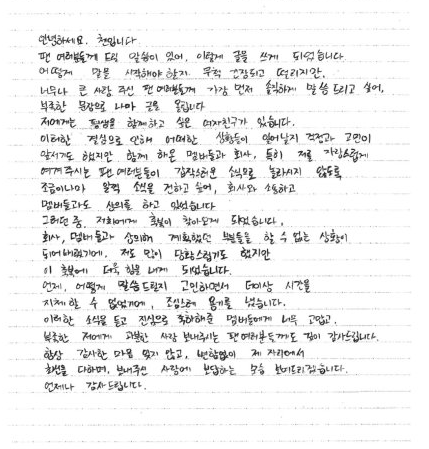 안녕하세요. 첸입니다
팬 여러분들께 드릴 말씀이 있어, 이렇게 글을 쓰게 되었습니다
어떻게 말을 시작해야 할지 무척 긴장되고 떨리지만,
너무나 큰 사랑 주신 팬 여러분들께 가장 먼저 솔직하게 말씀 드리고 싶어,
부족한 문장으로 나마 글을 올립니다
저에게는 평생을 함께하고 싶은 여자친구가 있습니다.
이러한 결심으로 인해 어떠한 상황들이 일어날지 걱정과 고민이
앞서기도 했지만 함께 해온 멤버들과 회사, 특히 저를 자랑스럽게
여겨주시는 팬 여러분들이 갑작스러운 소식으로 놀라시지 않도록
조금이나마 일찍 소식을 전하고 싶어, 회사와 소통하고
멤버들과도 상의를 하고 있었습니다
그러던 중, 저희에게 축복이 찾아오게 되었습니다.
회사, 멤버들과 상의해 계획했던 부분들을 할 수 없는 상황이
되어버렸기에, 저도 많이 당황스럽기도 했지만
이 축복에 더욱 힘을 내게 되었습니다.
언제, 어떻게 말씀드릴지 고민하면서 더이상 시간을
지체할 수 없었기에, 조심스레 용기를 냈습니다.
이러한 소식을 듣고 진심으로 축하해준 멤버들에게 너무 고맙고,
부족한 저에게 과분한 사랑 보내주시는 팬 여러분들께도 깊이 감사드립니다.
항상 감사한 마음 잊지 않고, 변함없이 제 자리에서
최선을 다하며, 보내주신 사랑에 보답하는 모습 보여드리겠습니다.
언제나 감사드립니다.